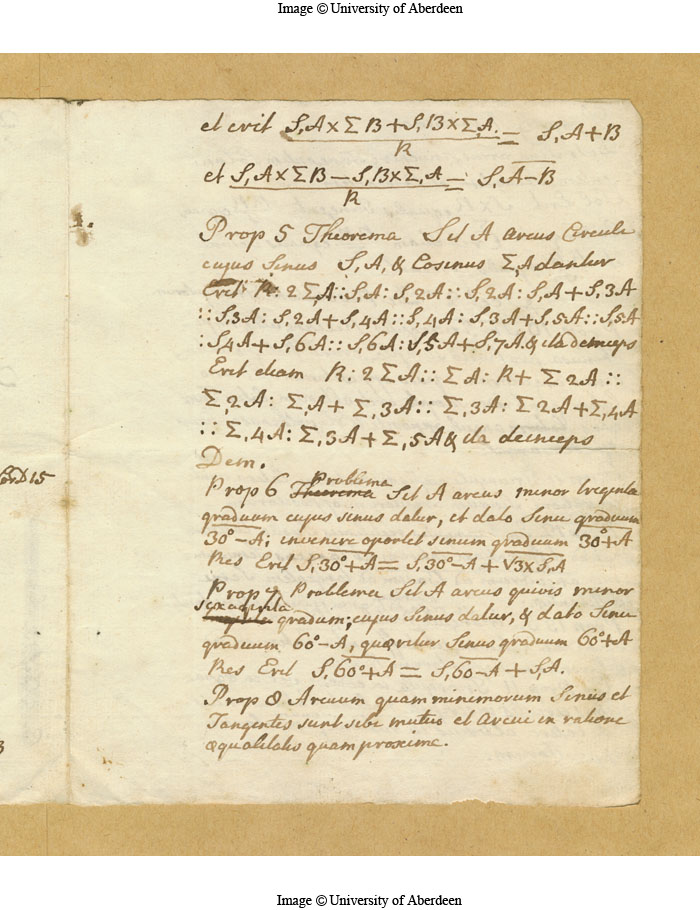 Image © University of Aberdeen
et erit S,A×ΣB+S,B×Σ,A. = S,A+B
R
et S,A×ΣB−S,B×Σ,A = S,A−B
R
Prop 5 Theorema Sit A arcus Circuli
cujus Sinus S,A, & Cosinus Σ,A dantur
Erit R: 2Σ,A:: S,A: S,2A:: S,2A: S,A+S,3A
:: S,3A: S,2A+S,4A:: S,4A: S,3A+S,5A:: S,5A
: S,4A+S,6A:: S,6A: S,5A+S,7A. & ita deinceps
Erit etiam R: 2ΣA:: ΣA: R+Σ2A::
Σ,2A: Σ,A+Σ,3A:: Σ,3A: Σ2A+Σ,4A
:: Σ,4A: Σ,3A+Σ,5A & ita deinceps
Dem.
D15
Problema
Prop 6 Theorema Sit A arcus minor triginta
graduum cujus sinus datur, et dato Sinu graduum
30°−A; invenire oportet sinum graduum 30°+A
Res Erit S,30°+A = S,30°−A+√3×S,A
Prop 7 Problema Sit A arcus quivis minor
sexaginta
gradum; cujus sinus datur, & dato Sinu
graduum 60°−A, quæritur Sinus graduum 60°+A
Res Erit S,60°+A = S,60−A+S,A.
Prop 8 Arcuum quam minimorum Sinus et
Tangentes sunt sibi mutuo et Arcui in ratione
3
æqualitatis quam proxime.
Image © University of Aberdeen